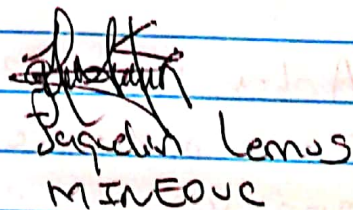 Jaquelin Lemus
MINEDUC